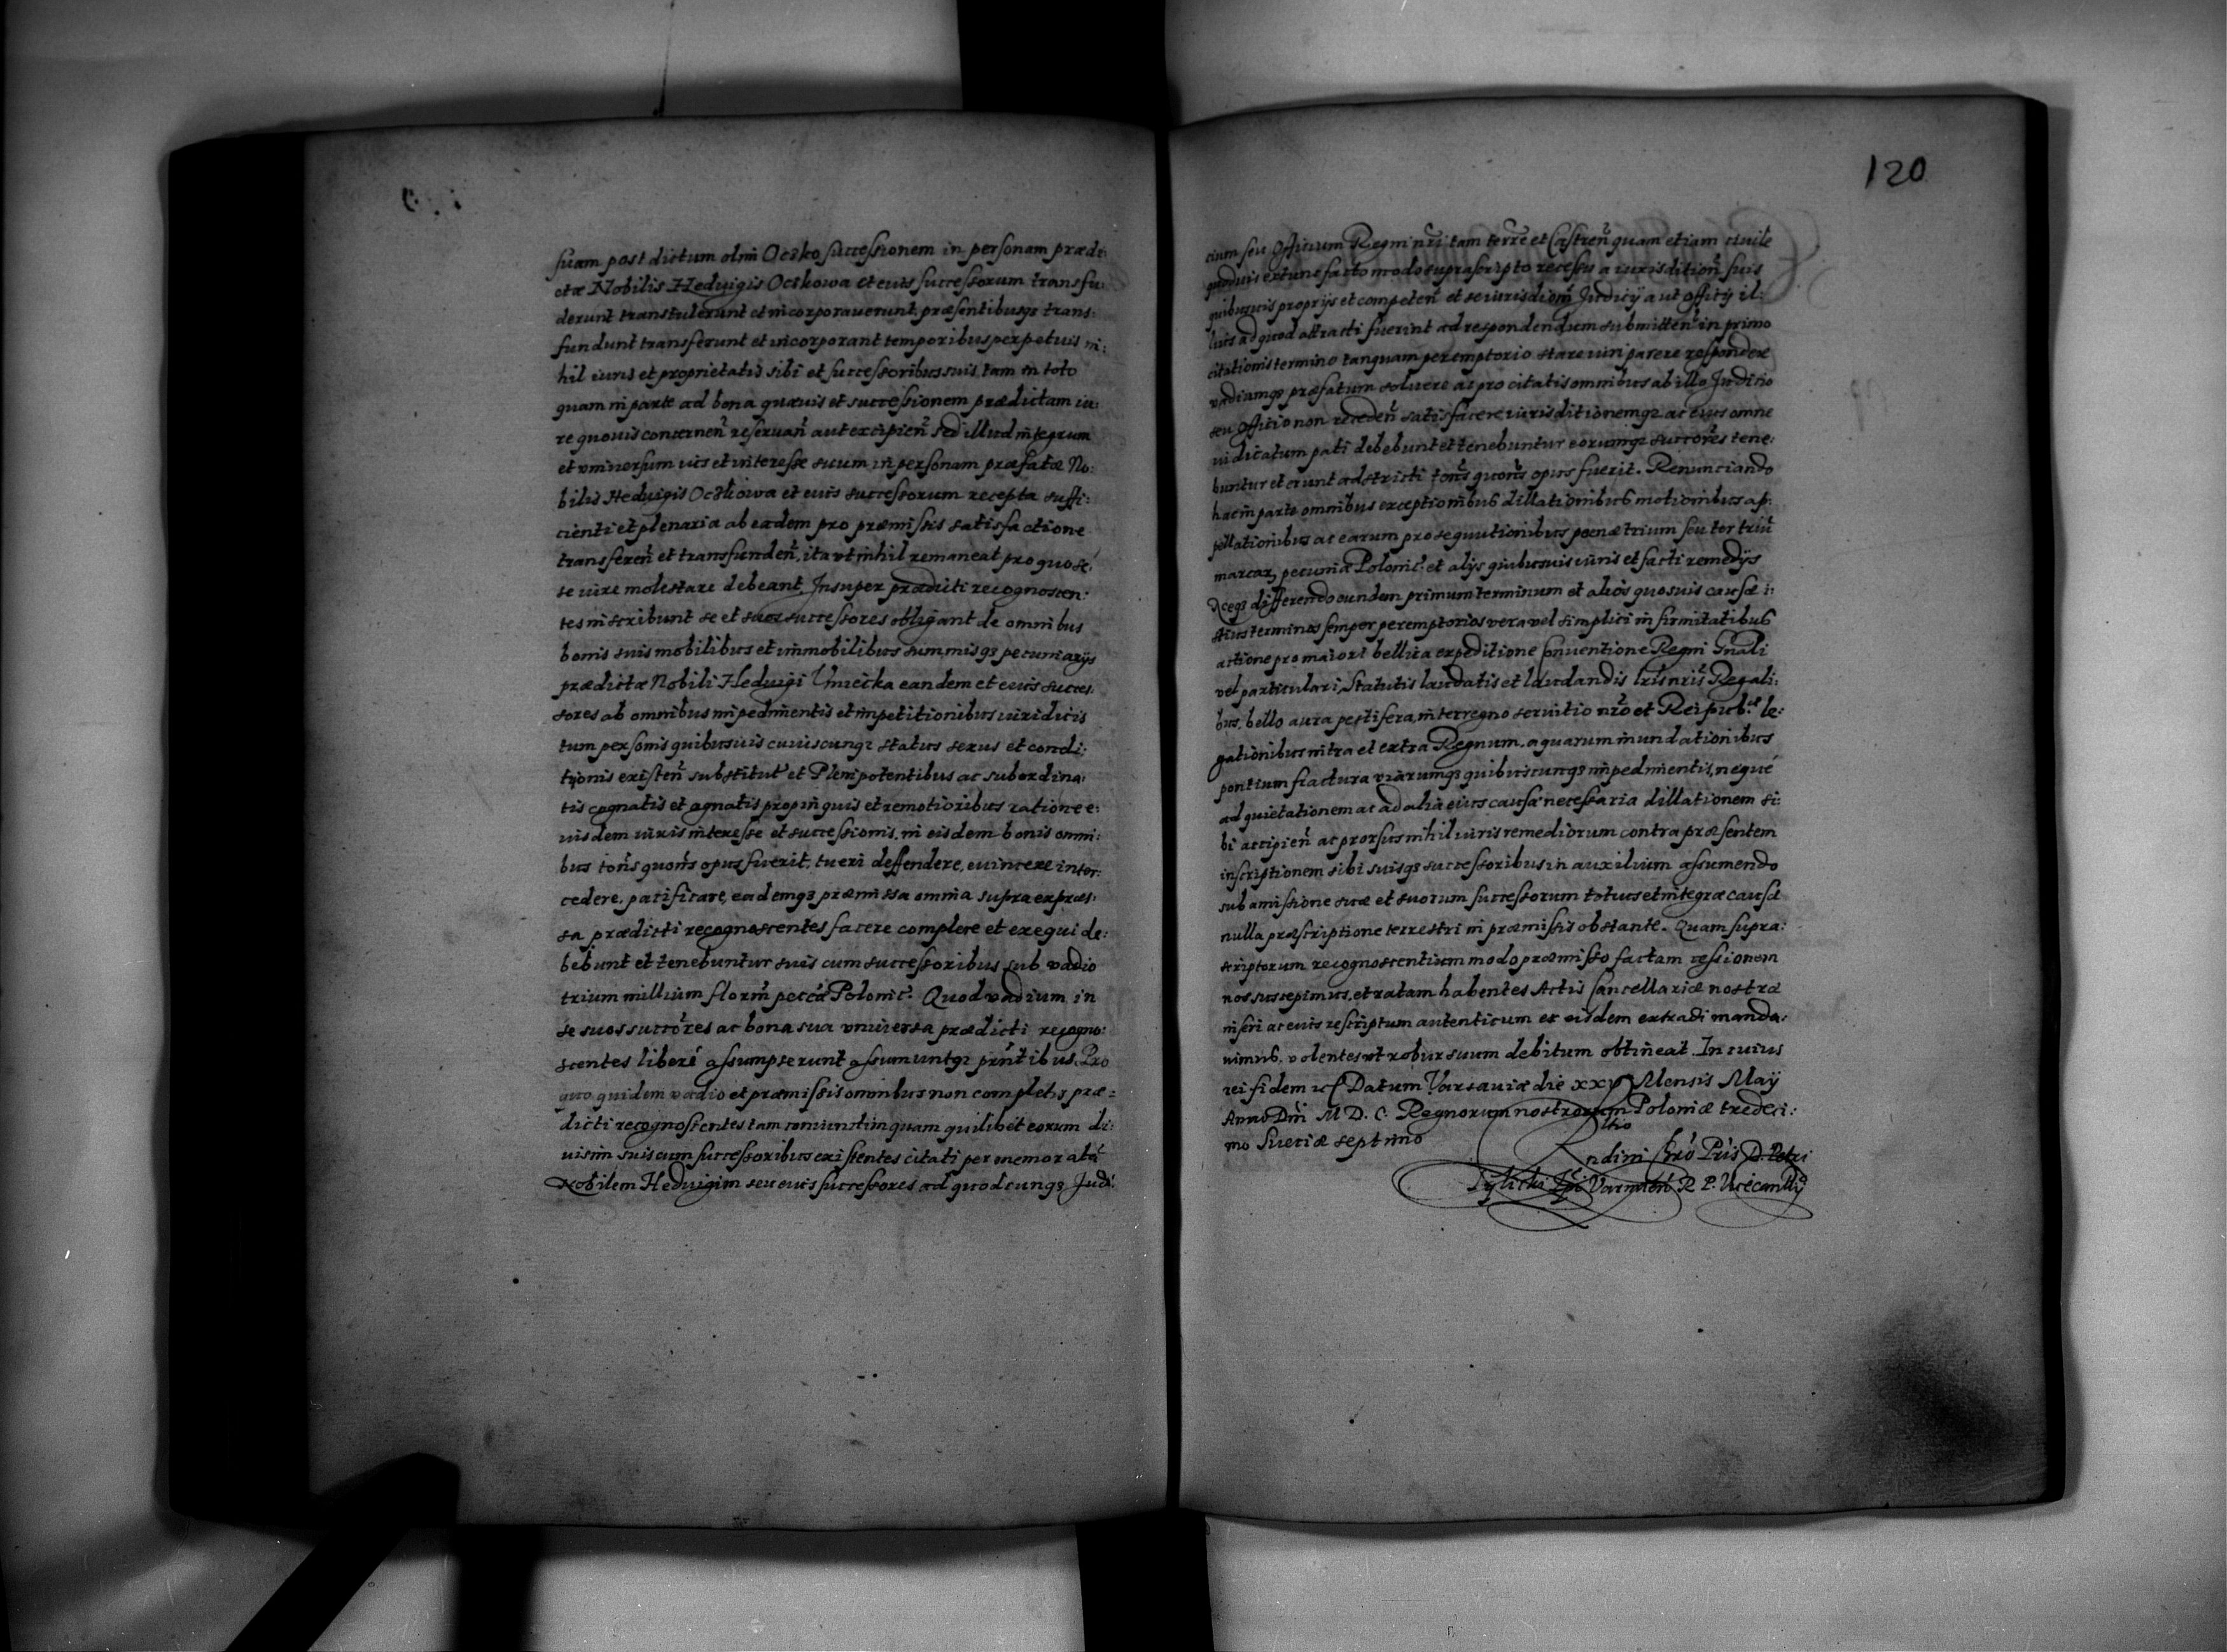 suam post dictum olim Oczko successionem in personam prædi:
ctæ Nobilis Hedvigis Oczkowa et eius successorum transfu:
derunt transtulerunt et incorporauerunt præsentibusq3 trans:
fundunt transferunt et incorporant temporibus perpetuis ni:
hil iuris et proprietatis sibi et successoribus suis tam in toto
quam in parte ad bona quæuis et successionem prædictam iu:
re quouis concernen̄ reseruan̄ aut excipien̄ sed illud integrum
et vniuersum ius et interesse suum in personam præfatæ No:
bilis Hedvigis Oczkowa et eius successorum recepta suffi:
cienti et plenaria ab eadem pro præmissis satisfactione
transferen̄ et transfunden̄, ita vt nihil remaneat pro quo se
te iure molestare debeant. Insuper prædicti recognoscen:
tes inscribunt se et suos successores obligant de omnibus
bonis suis mobilibus et immobilibus summisq3 pecuniarijs
prædictæ Nobili Hedvigi Vniecka eandem et eius succes:
sores ab omnibus impedimentis et impetitionibus iuridicis
tum personis quibusuis cuiuscunq3 status sexus et condi:
tionis existen̄ substitut et Plenipotentibus ac subordina:
tis cognatis et agnatis propinquis et remotioribus ratione e:
iusdem iuris interesse et successionis, in eisdem bonis omni:
bus totiēs quotiēs opus fuerit, tueri deffendere, euincere inter:
cedere, pacificare, eademq3 præmissa omnia supra expres:
sa prædicti recognoscentes facere complere et exequi de:
bebunt et tenebuntur suis cum successoribus sub vadio
trium millium florm̄ peccā Polonic: Quod vadium in
se suos succōres ac bona sua vniuersa prædicti recogno:
scentes liberè assumpserunt assumuntq3 prn̄tibus. Pro
quo quidem vadio et præmissis omnibus non completis præ:
dicti recognoscentes tam coniunctim quam quilibet eorum di:
uisim suis cum successoribus existentes citati per memoratā
Nobilem Hedvigim seu eius successores ad quodcunq3 Judi:
120
cium seu Officium Regni nr̄i tam terrē et Castren̄ quam etiam ciuile
quoduis ex tunc facto modo suprascripto recessu a iurisdition̄ suis
quibusuis proprijs et competen̄ et se iurisdiom̄ Judicij aut Officij il:
lius ad quod attracti fuerint ad respondendum submitten̄ in primo
citationis termino tanquam peremptorio stare iuri parere respondere
vadiumq3 præfatum soluere ac pro citatis omnibus ab illo Judicio
seu Officio non receden̄ satisfacere iurisditionemq3 ac eius omne
iudicatum pati debebunt et tenebuntur eorumq3 succores tene:
buntur et erunt adstricti totiēs quotiēs opus fuerit. Renunciando
hac in parte omnibus exceptionibus dillationibus motionibus ap:
pellationibus ac earum prosequutionibus poenæ trium seu ter triū
marcar, pecuniæ Polonic: et alijs quibusuis iuris et facti remedijs
differendo eundem primum terminum et alios quosuis causæ i:
stius terminos semper peremptorios vera vel simplici infirmitatibus
actione pro maiori bellica expeditione Conuentione Regni Gn̄ali
vel particulari, Statutis laudatis et laudandis lris nris Regali:
bus, bello aura pestifera, interregno seruitio nrō et Reipub.cæ le:
gationibus intra et extra Regnum, aquarum inundationibus
pontium fractura viarumq3 quibuscunq3 impedimentis, nequè
ad quietationem ac ad alia eius causæ necessaria dillationem si:
bi accipien̄ ac prorsus nihil iuris remediorum contra præsentem
inscriptionem sibi suisq3 successoribus in auxilium assumendo
sub amissione suæ et suorum successorum totius et integræ causæ
nulla præscriptione terrestri in præmissis obstante. Quam supra:
scriptorum recognoscentium modo præmisso factam cessionem
nos suscepimus, et ratam habentes Actis Cancellariæ nostræ
inseri ac eius rescriptum autenticum et eisdem extradi manda:
uimus, volentes vt robur suum debitum obtineat. In cuius
rei fidem Datum Varsauiæ die Mensis Maij
Anno Dni M D. C. Regnorum nostrorum Poloniæ tredeci:
mo Sueciæ septimo
Rndi in Chrō Pris D. Petri
Tylicki Epi Varmien̄ R. P. Vicecanllij